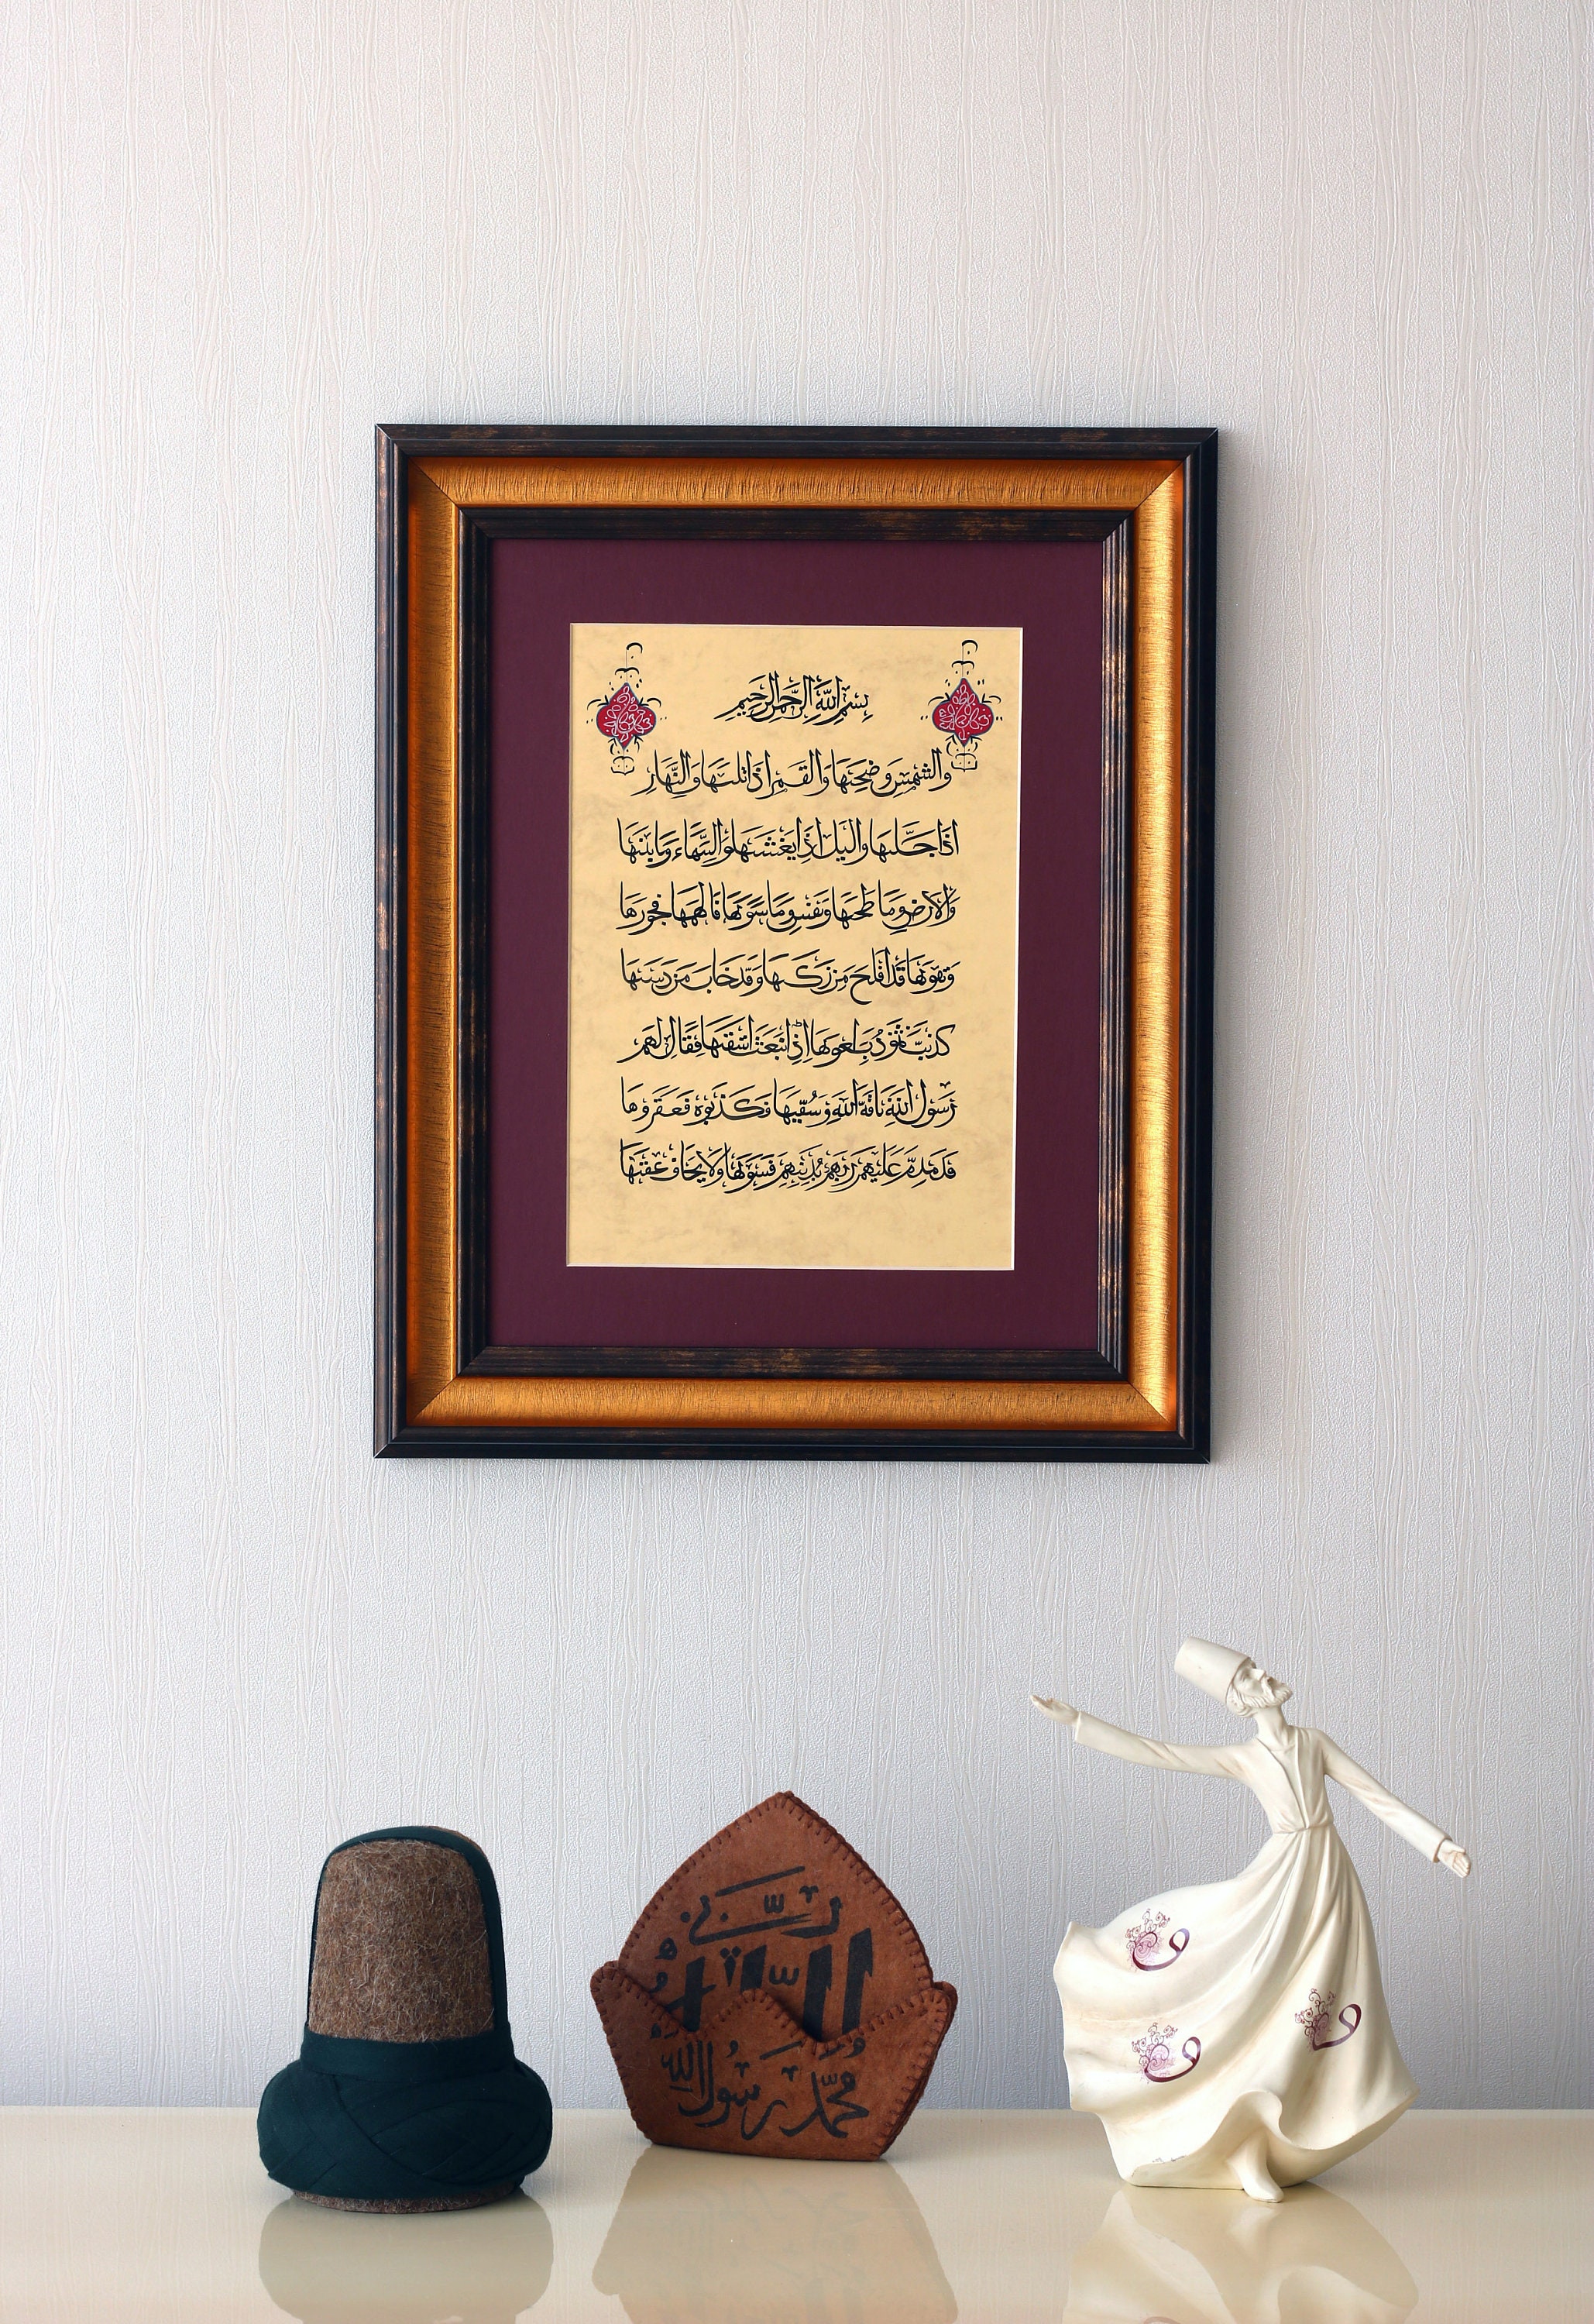 بسم الله الرحمن الرحيم
والشمس وضحيها والقمر اذا تليها والنهار
اذا جليها واليل اذا يغشيها والسماء وما بنيها
والارض وما طحيها ونفس وما سويها فالهمها فجورها
وتقويها قد افلح من زكيها وقد خاب من دسيها
كذبت ثمود بطغويها اذ انبعث اشقيها فقال لهم
رسول الله ناقة الله وسقييها فكذبوه فعقروها
فدمدم عليهم ربهم بذنبهم فسويها ولا يخاف عقبيها
محمد رسول الله
و
و
و